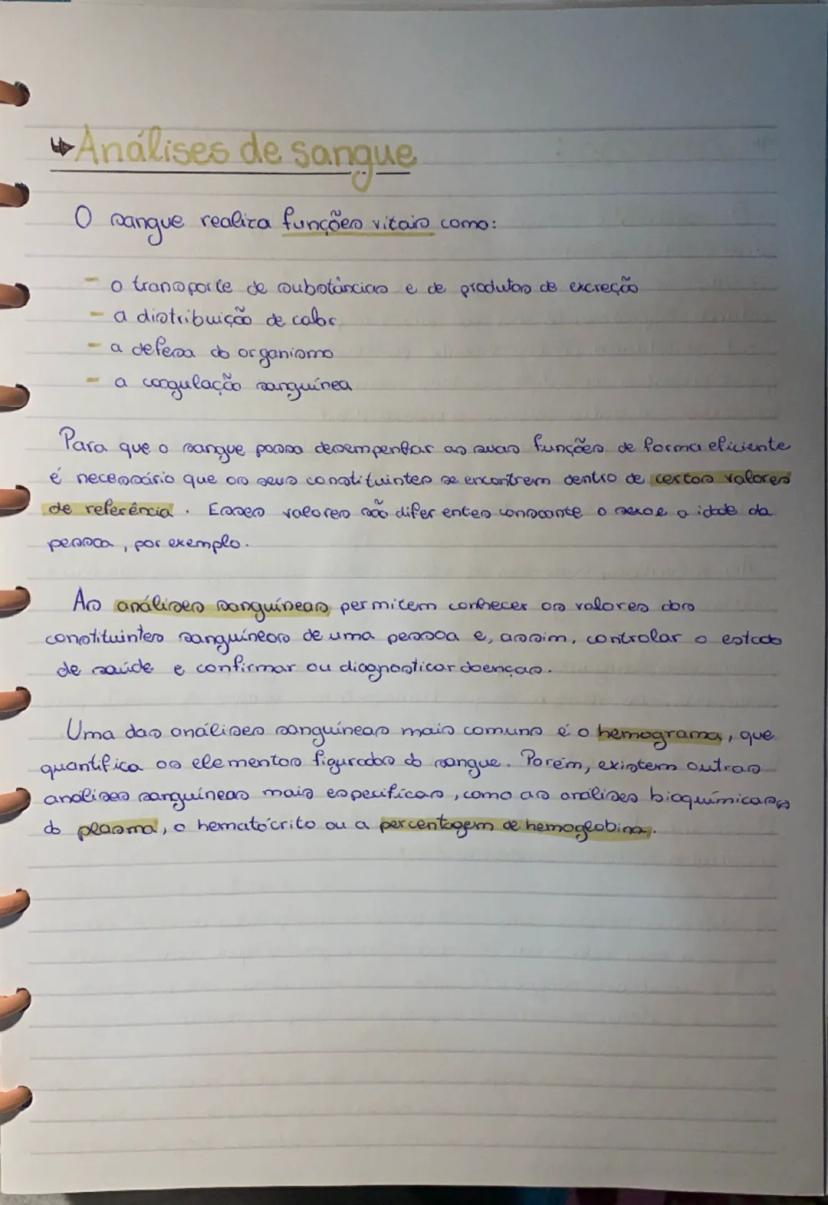 Análises de sangue
O sangue realiza funções vitais como:
- o transporte de substâncias e de produtos de excreção
- a distribuição de calor
- a defesa do organismo
- a coagulação sanguínea
Para que o sangue possa desempenhar as suas funções de forma eficiente
é necessário que os seus constituintes se encontrem dentro de certos valores
de referência. Esses valores são diferentes consoante o sexo e a idade da
pessoa, por exemplo.
As análises sanguíneas permitem conhecer os valores dos
constituintes sanguíneos de uma pessoa e, assim, controlar o estado
de saúde e confirmar ou diagnosticar doenças.
Uma das análises sanguíneas mais comuns é o hemograma, que
quantifica os elementos figurados do sangue. Porém, existem outras
análises sanguíneas mais específicas, como as análises bioquímicas
do plasma, o hematócrito ou a percentagem de hemoglobina.